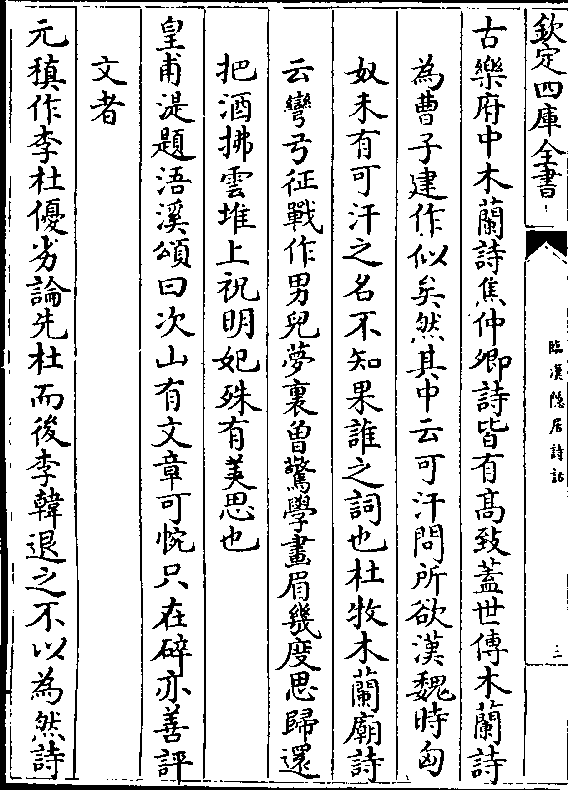 欽定四庫全書
臨漢隠居詩話
三
古樂府中木蘭詩焦仲卿詩皆有髙致蓋世傳木蘭詩
為曹子建作似矣然其中云可汗問所欲漢魏時匈
奴未有可汗之名不知果誰之詞也杜牧木蘭廟詩
云彎弓征戰作男兒夢裏曽驚學畫眉幾度思歸還
把酒拂雲堆上祝明妃殊有美思也
皇甫湜題浯溪頌曰次山有文章可惋只在碎亦善評
文者
元稹作李杜優劣論先杜而後李韓退之不以為然詩